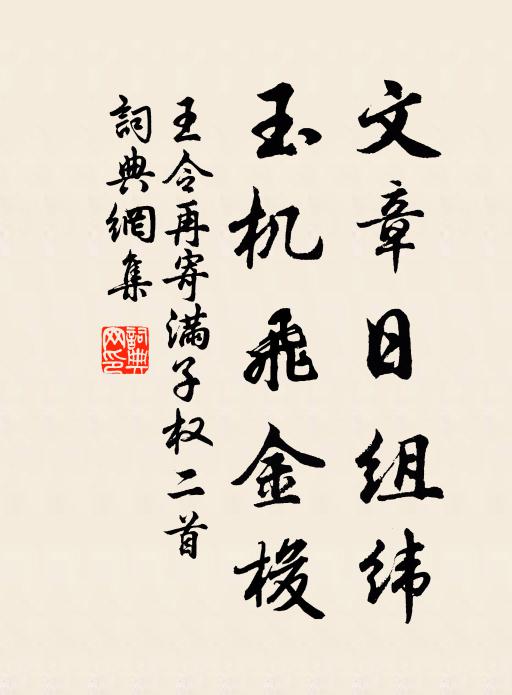 文章日组纬
玉机飛金梭
王令再寄满子权二首
詞典網集
詞典网印